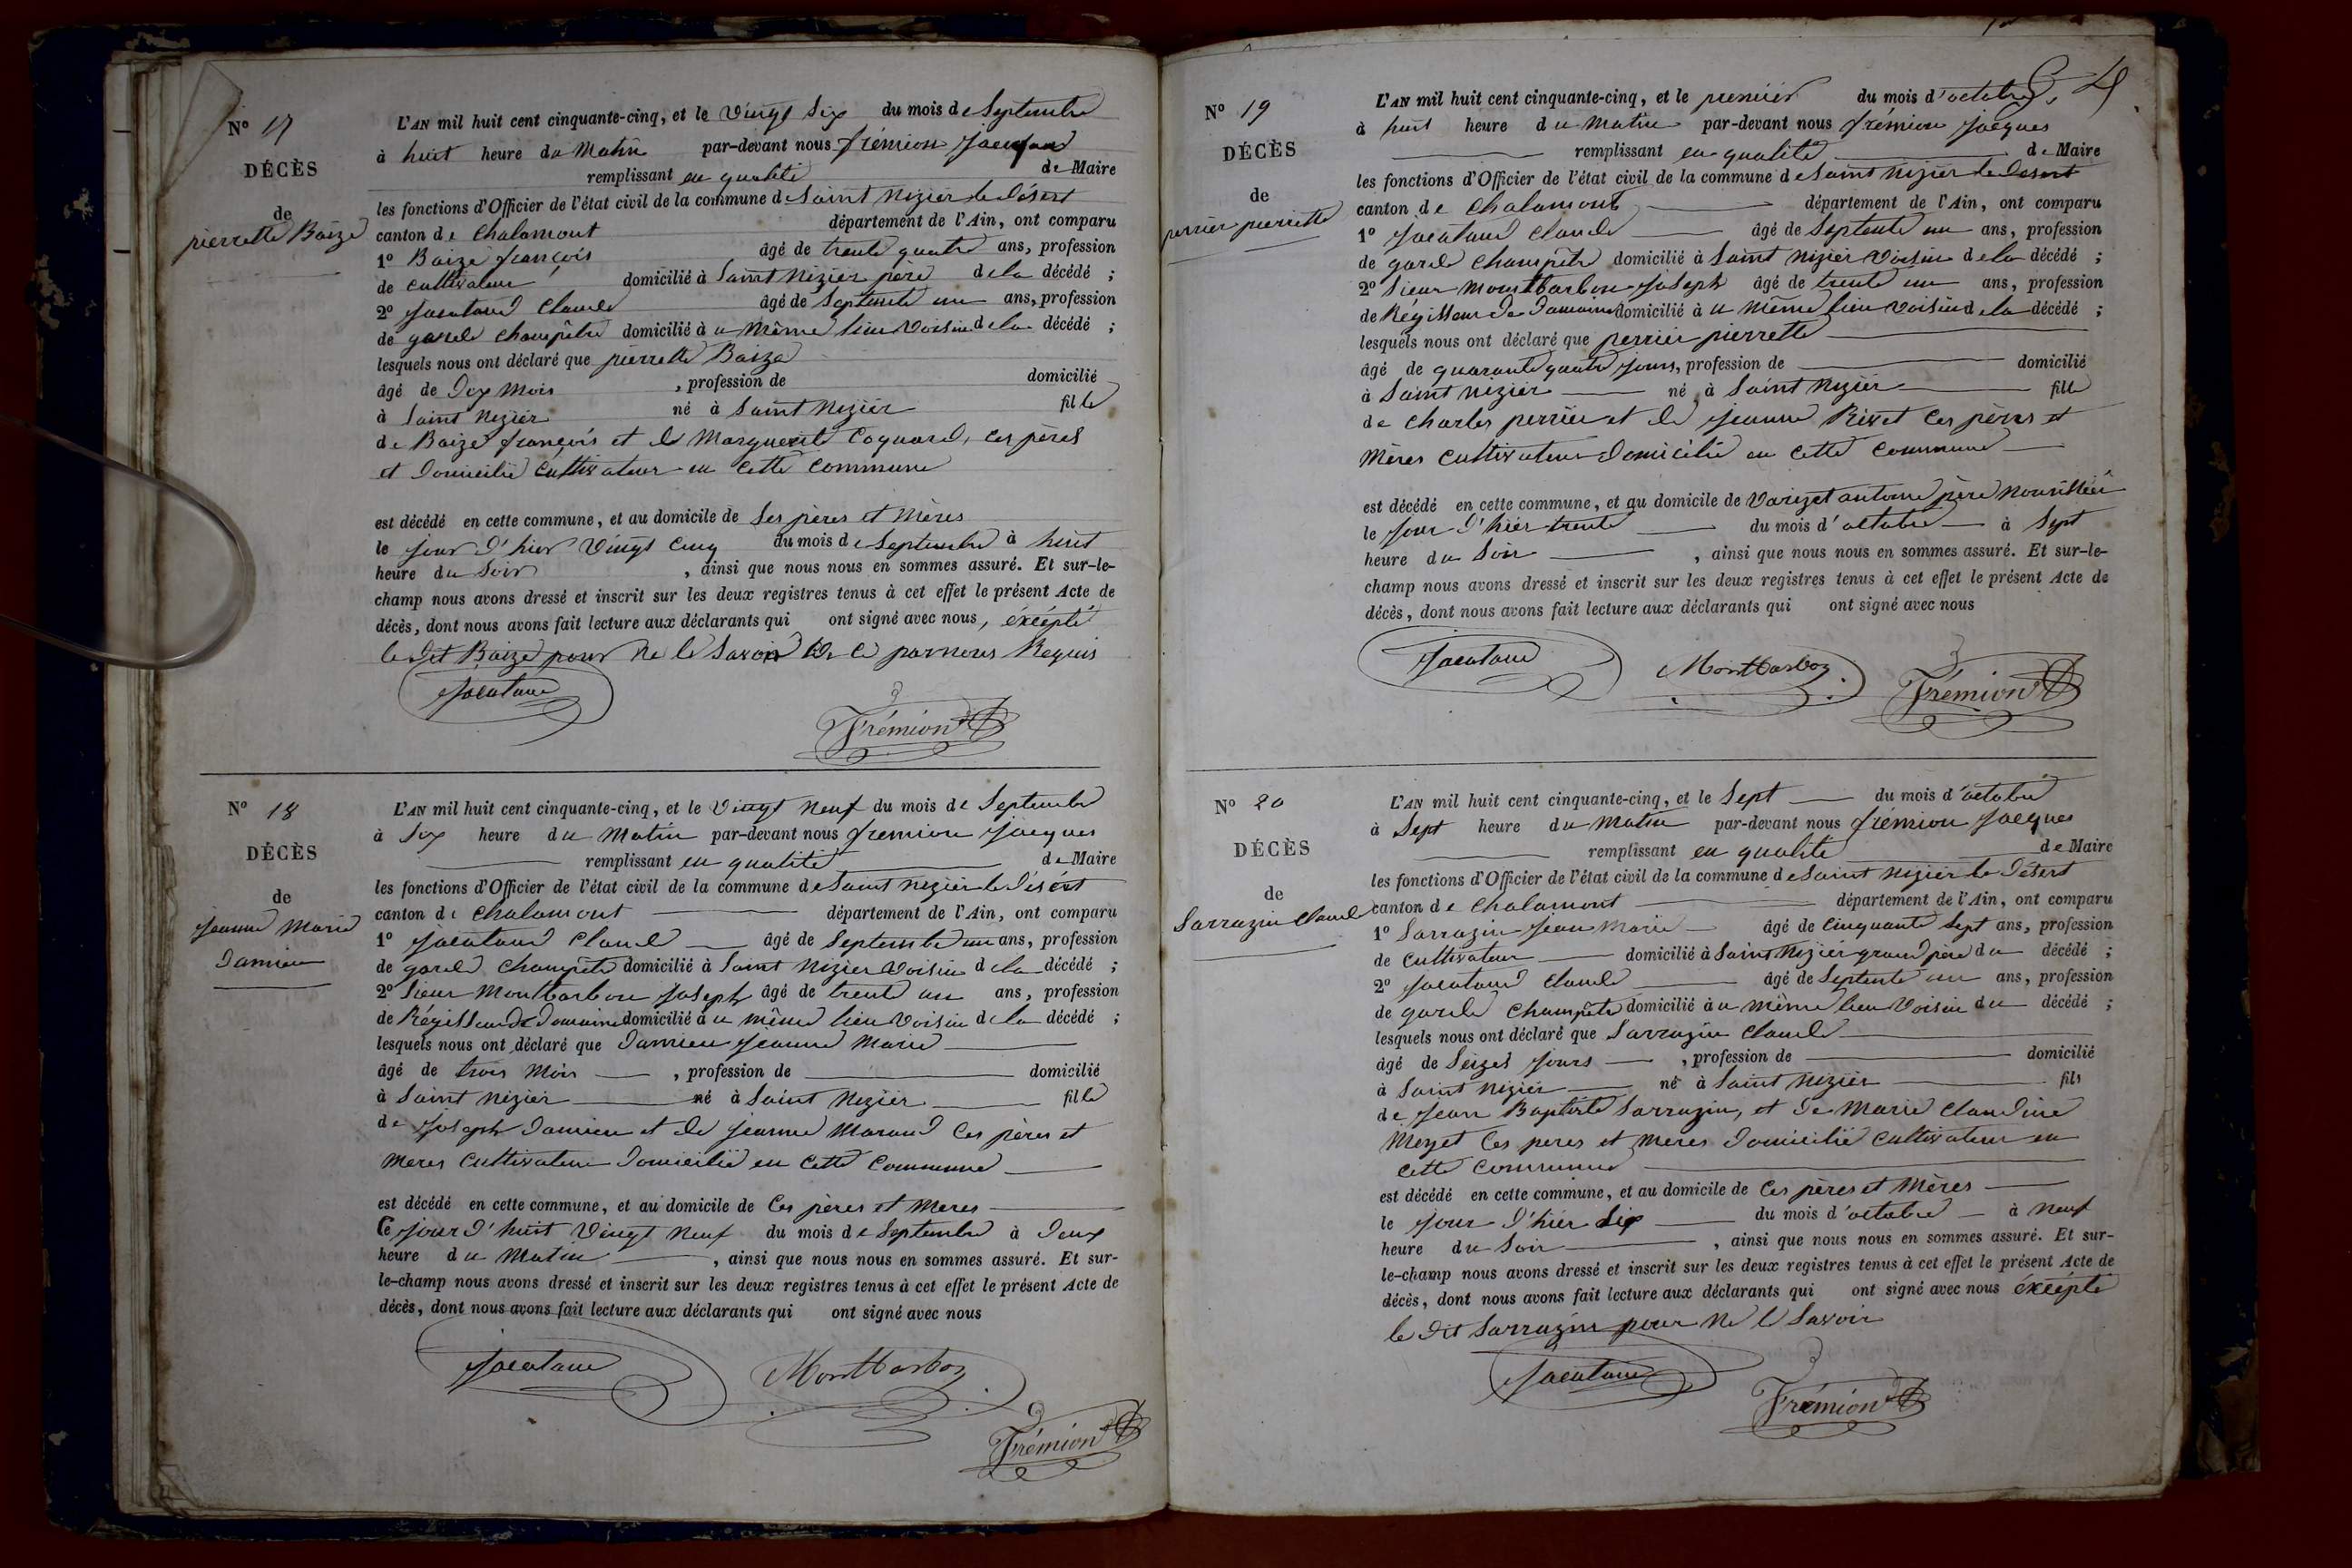 N° 17
DÉCÈS
de
pierrette Baize
L'AN mil huit cent cinquante-cinq, et le Vingt Six du mois de Septembre
à huit heure du Matin par-devant nous frémion Jacques
remplissant en qualité de Maire
les fonctions d'Officier de l'état civil de la commune de Saint Nizier le Désert
canton de Chalamont département de l'Ain, ont comparu
1° Baize françois âgé de trente quatre ans, profession
de cultivateur domicilié à Saint Nizier père de la décédé ;
2° Jacataud Claude âgé de Septente un ans, profession
de garde champêtre domicilié à u Même lieu Voisin de la décédé ;
lesquels nous ont déclaré que pierrette Baize
âgé de dix Mois , profession de domicilié
à Saint Nizier né à Saint Nizier fille
de Baize françois et de Marguerite Coquard, ces pères
et domicilié cultivateur en cette commune
est décédé en cette commune, et au domicile de Ses pères et Mères
le jour d'hier Vingt cinq du mois de Septembre à huit
heure du Soir , ainsi que nous nous en sommes assuré. Et sur-le-
champ nous avons dressé et inscrit sur les deux registres tenus à cet effet le présent Acte de
décès, dont nous avons fait lecture aux déclarants qui ont signé avec nous, éxcépté
le dit Baize pour Ne le Savoir de ce par nous Requis
Jacataud
Frémion
N° 18
DÉCÈS
de
Jeanne Marie
Damien
L'AN mil huit cent cinquante-cinq, et le Vingt Neuf du mois de Septembre
à Six heure du Matin par-devant nous fremion Jacques
remplissant en qualité de Maire
les fonctions d'Officier de l'état civil de la commune de Saint Nizier le Désért
canton de Chalamont département de l'Ain, ont comparu
1° Jacataud Claude âgé de Septembre un ans, profession
de garde Champêtre domicilié à Saint Nizier Voisin de la décédé ;
2° Sieur Montbarbon Joseph âgé de trente un ans, profession
de Régisseur de Domaine domicilié à u même lieu Voisin de la décédé ;
lesquels nous ont déclaré que Damien Jeanne Marie
âgé de trois Mois , profession de domicilié
à Saint Nizier né à Saint Nizier fille
de Joseph Damien et de Jeanne Maraud Ces pères et
Meres Cultivateur Domicilié en Cette Commune
est décédé en cette commune, et au domicile de Ces pères et Meres
Ce jour d'huit Vingt Neuf du mois de Septembre à Deux
heure du Matin , ainsi que nous nous en sommes assuré. Et sur-
le-champ nous avons dressé et inscrit sur les deux registres tenus à cet effet le présent Acte de
décès, dont nous avons fait lecture aux déclarants qui ont signé avec nous
Jacataud Montbarbon
Frémion
N° 19
DÉCÈS
de
perrier pierrette
L'AN mil huit cent cinquante-cinq, et le premier du mois d'octobre
à huit heure du Matin par-devant nous frémion Jacques
remplissant en qualité de Maire
les fonctions d'Officier de l'état civil de la commune de Saint Nizier le Desert
canton de Chalamont département de l'Ain, ont comparu
1° Jacataud Claude âgé de Septente un ans, profession
de garde Champêtre domicilié à Saint Nizier Voisin de la décédé ;
2° Sieur Montbarbon Joseph âgé de trente un ans, profession
de Régisseur de Domaine domicilié à u même lieu voisin de la décédé ;
lesquels nous ont déclaré que perrier pierrette
âgé de quarante quatre jours, profession de domicilié
à Saint Nizier né à Saint Nizier fille
de Charles perrier et de Jeanne Rivet Ces pères et
Mères Cultivateur Domicilié en Cette Commune
est décédé en cette commune, et au domicile de Varizet antoine père Nourissier
le Jour d'hier trente du mois d'octobre à Sept
heure du Soir , ainsi que nous nous en sommes assuré. Et sur-le-
champ nous avons dressé et inscrit sur les deux registres tenus à cet effet le présent Acte de
décès, dont nous avons fait lecture aux déclarants qui ont signé avec nous
Jacataud Montbarbon Frémion
N° 20
DÉCÈS
de
Sarrazin Claude
L'AN mil huit cent cinquante-cinq, et le Sept du mois d'octobre
à Sept heure du Matin par-devant nous frémion Jacques
remplissant en qualité de Maire
les fonctions d'Officier de l'état civil de la commune de Saint Nizier le Désert
canton de Chalamont département de l'Ain, ont comparu
1° Sarrazin Jean Marie âgé de Cinquante Sept ans, profession
de Cultivateur domicilié à Saint Nizier grand père du décédé ;
2° Jacataud Claude âgé de Septente un ans, profession
de garde Champêtre domicilié à u même lieu Voisin du décédé ;
lesquels nous ont déclaré que Sarrazin Claude
âgé de Seizes Jours , profession de domicilié
à Saint Nizier né à Saint Nizier fils
de Jean Baptiste Sarrazin, et de Marie Claudine
Meyzet Ces peres et meres Domicilié Cultivateur en
Cette Commune
est décédé en cette commune, et au domicile de Ces pères et Mères
le Jour d'hier Six du mois d'octobre à Neuf
heure du Soir , ainsi que nous nous en sommes assuré. Et sur-
le-champ nous avons dressé et inscrit sur les deux registres tenus à cet effet le présent Acte de
décès, dont nous avons fait lecture aux déclarants qui ont signé avec nous éxcépté
le dit Sarrazin pour Ne le Savoir
Jacataud
Frémion